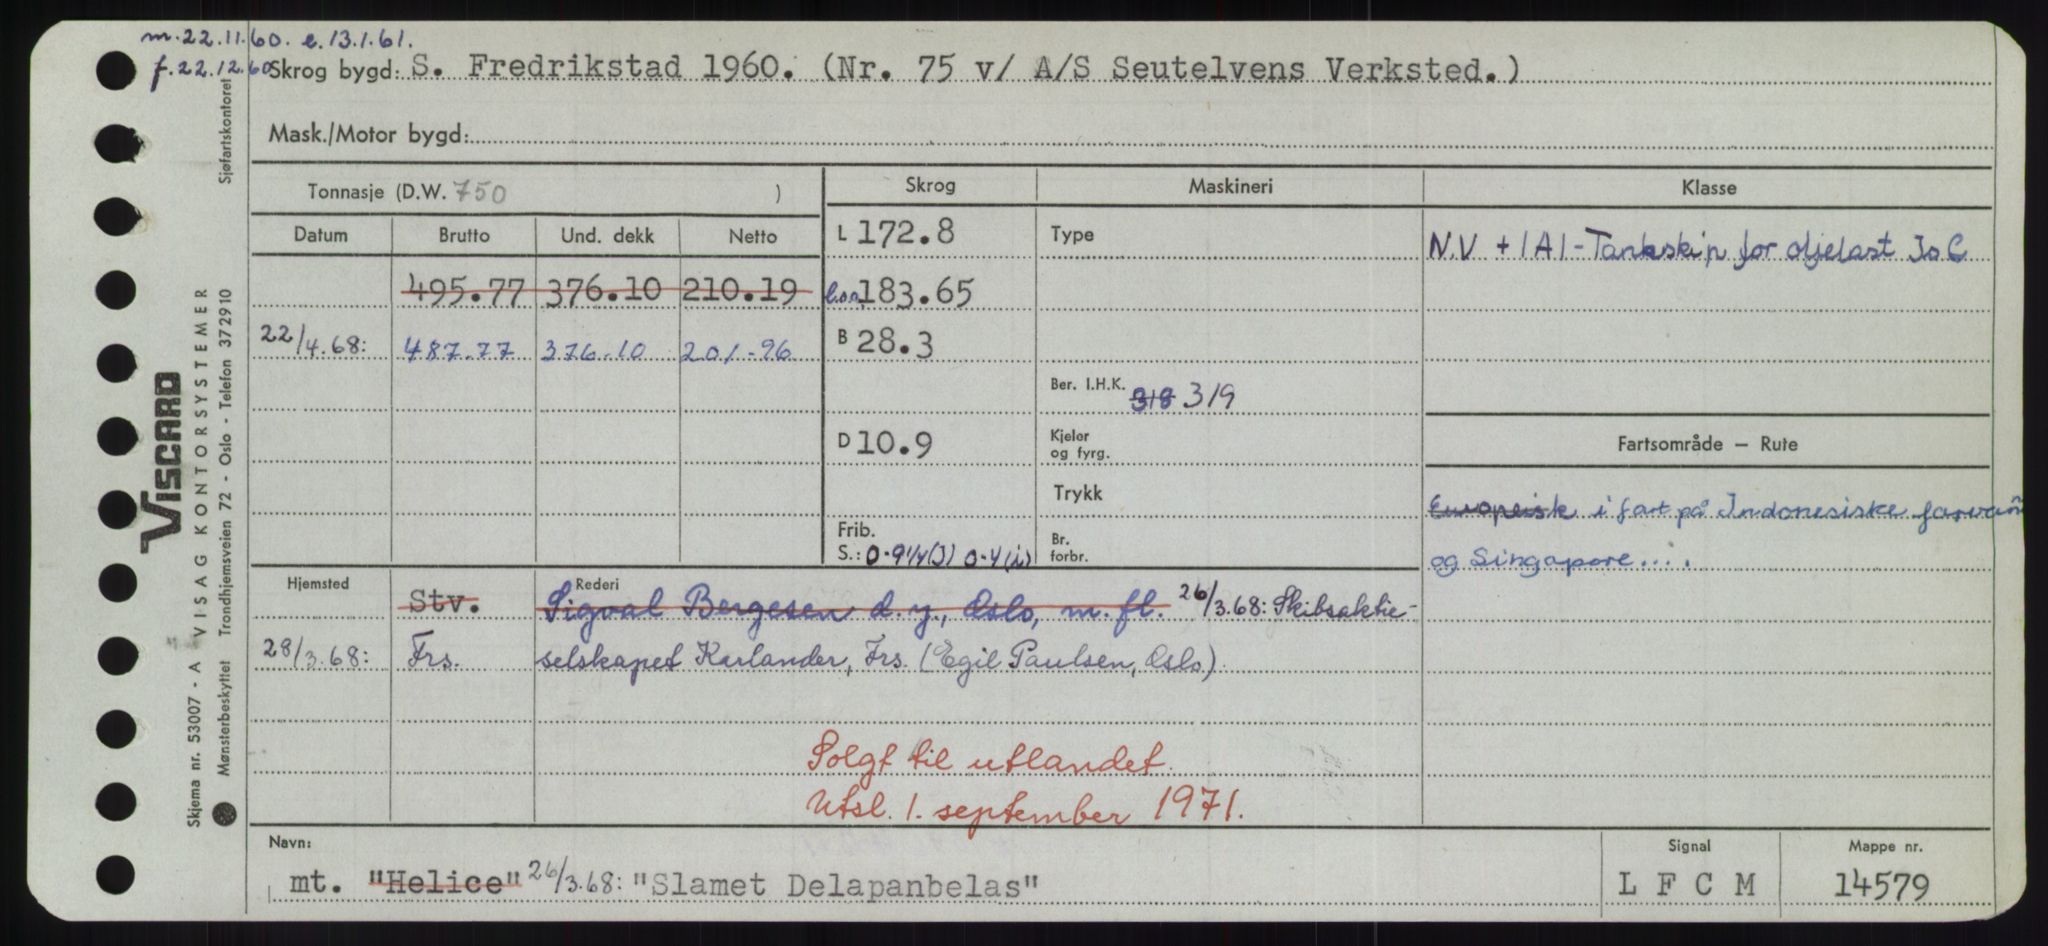 m. 22.11.60. e. 13.1.61.
f. 22.12.60
Skrog bygd: S. Fredrikstad 1960. (Nr. 75 v/ A/S Seutelvens Verksted.)
Mask./Motor bygd:
Tonnasje (D.W. 750 )
Skrog Maskineri Klasse
Datum Brutto Und. dekk Netto
L 172.8 Type
N.V + 1A1-Tankskip for oljelast Is C
495.77 376.10 210.19
l.o.a. 183.65
22/4.68: 487.77 376.10 201.96
B 28.3
Ber. I.H.K. 318 319
D 10.9
Kjeler og fyrg.
Fartsområde — Rute
Trykk
Europeisk i fart på Indonesiske farvann
Frib.
S.: 0-9 1/4 (S) 0-4 (i)
Br. forbr.
og Singapore....
Hjemsted Rederi
Stv. Sigval Bergesen d.y., Oslo, m.fl. 26/3.68: Skibsaktie-
28/3.68: Frs. selskapet Karlander, Frs. (Egil Paulsen, Oslo)
Solgt til utlandet.
Utsl. 1. september 1971.
Navn: Signal Mappe nr.
mt. "Helice" 26/3.68: "Slamet Delapanbelas" L F C M 14579
Viscard
Skjema nr. 53007 - A VISAG KONTORSYSTEMER
Mønsterbeskyttet Trondhjemsveien 72 - Oslo - Telefon 372910 Sjøfartskontoret